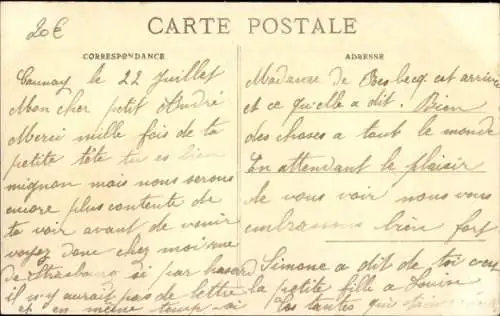 20€
CARTE POSTALE
CORRESPONDANCE
Launay, le 22 Juillet
Mon cher petit André
Merci mille fois de ta
petite tête tu es bien
mignon mais nous serons
encore plus contente de
te voir avant de venir
voyez donc chez moi rue
de Strasbourg si par hasard
il n'y aurait pas de lettre
et en même temps si
ADRESSE
Madame de est arrivée
et ce qu'elle a dit. Bien
des choses a tout le monde
En attendant le plaisir
de vous voir nous vous
embrassons bien fort
Simone a dit de toi
la petite fille a Louise
Les tantes qui